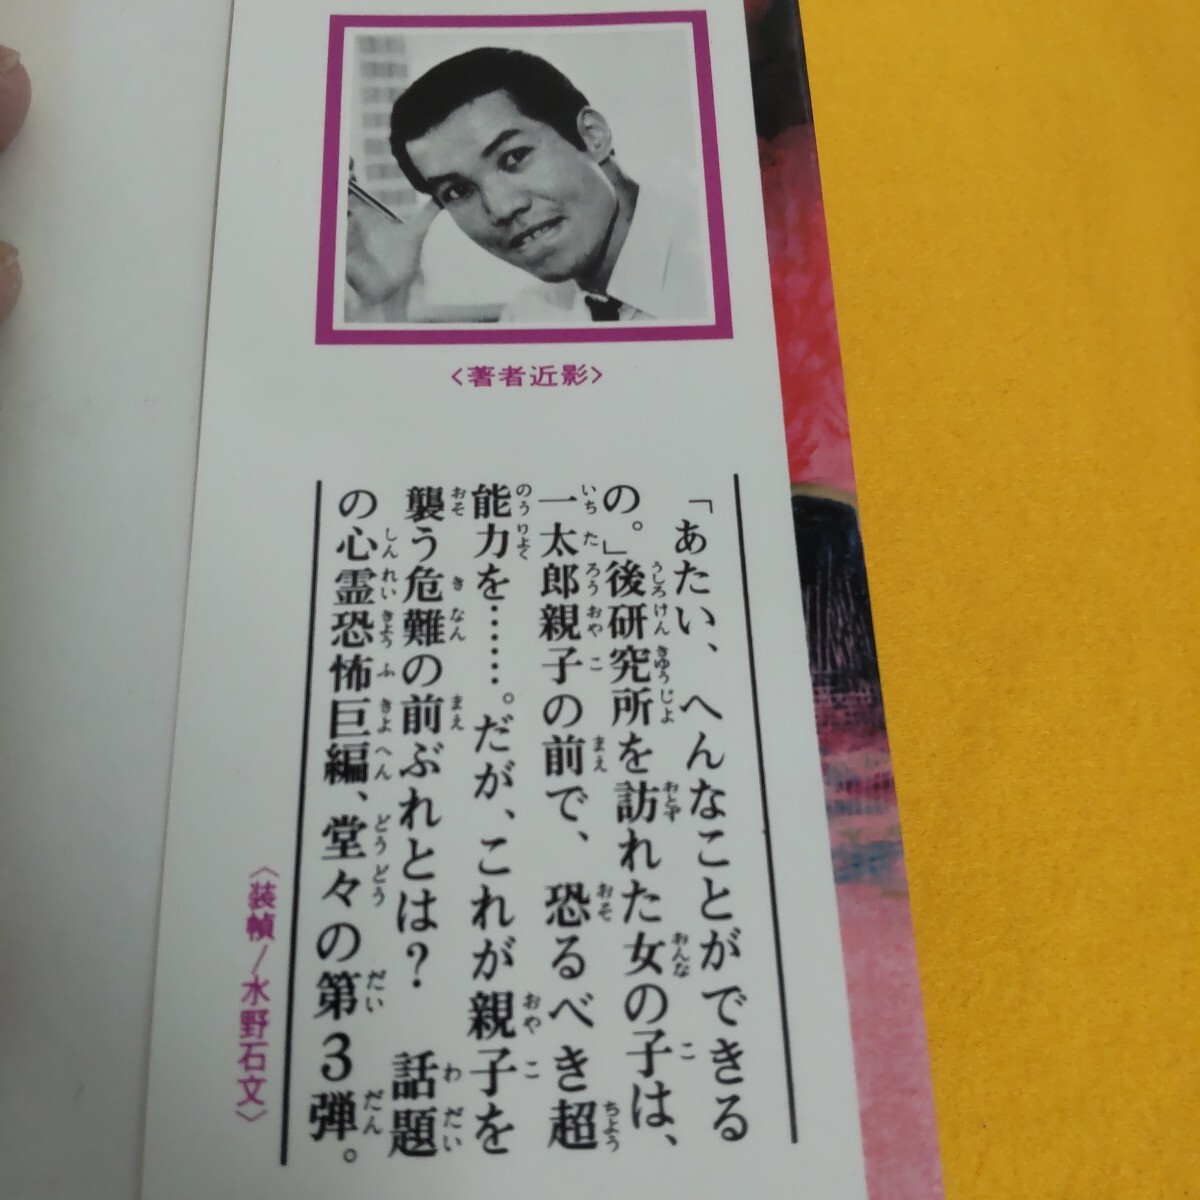 〈著者近影〉
「あたい、へんなことができる
の。」後研究所を訪れた女の子は、
一太郎親子の前で、恐るべき超
能力を……。だが、これが親子を
襲う危難の前ぶれとは？　話題
の心霊恐怖巨編、堂々の第３弾。
〈装幀/水野石文〉